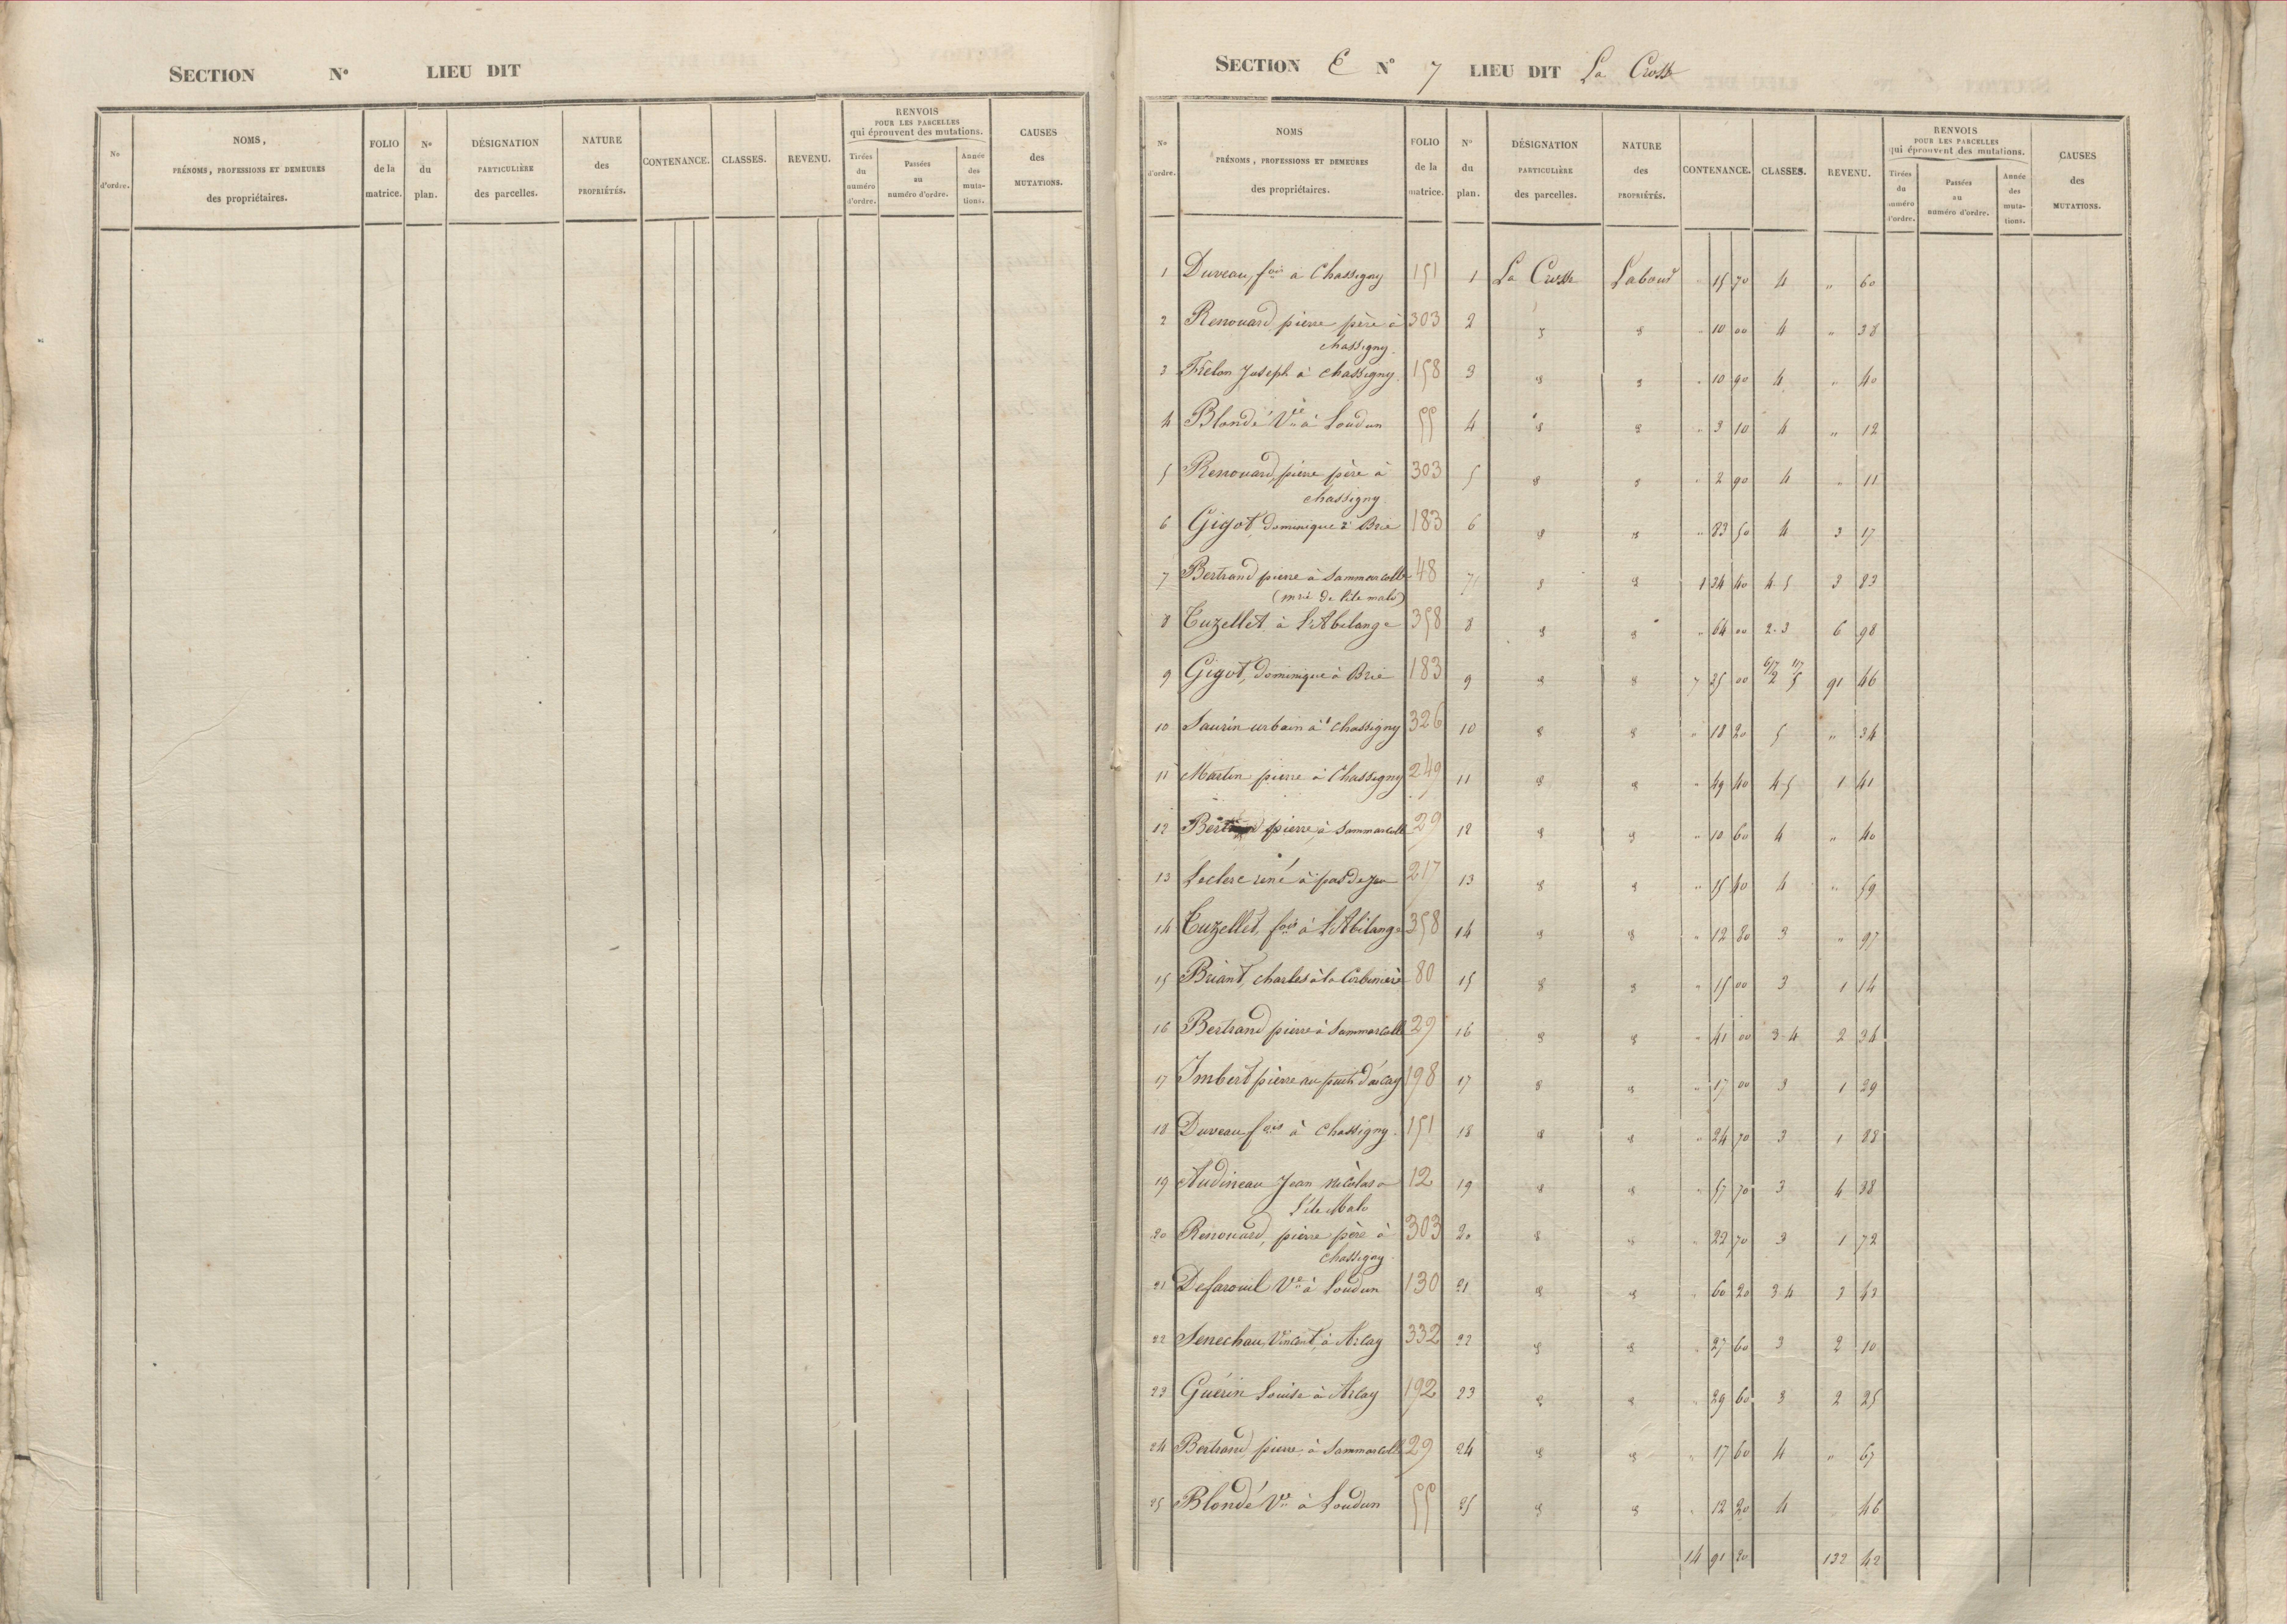 SECTION N° LIEU DIT
N° d'ordre.
NOMS, PRÉNOMS, PROFESSIONS ET DEMEURES des propriétaires.
FOLIO de la matrice.
N° du plan.
DÉSIGNATION PARTICULIÈRE des parcelles.
NATURE des PROPRIÉTÉS.
CONTENANCE.
CLASSES.
REVENU.
RENVOIS POUR LES PARCELLES qui éprouvent des mutations.
Tirées du numéro d'ordre.
Passées au numéro d'ordre.
Année des mutations.
CAUSES des MUTATIONS.
SECTION E N° 7 LIEU DIT La Crosse
N° d'ordre.
NOMS PRÉNOMS, PROFESSIONS ET DEMEURES des propriétaires.
FOLIO de la matrice.
N° du plan.
DÉSIGNATION PARTICULIÈRE des parcelles.
NATURE des PROPRIÉTÉS.
CONTENANCE.
CLASSES.
REVENU.
RENVOIS POUR LES PARCELLES qui éprouvent des mutations.
Tirées du numéro d'ordre.
Passées au numéro d'ordre.
Année des mutations.
CAUSES des MUTATIONS.
1 Duveau, fois à Chassigny 151 1 La Crosse Labour " 15 70 4 " 60
2 Renouard pierre père à 303 2 " " " 10 00 4 " 38
chassigny
3 Frélon Joseph à chassigny 158 3 " " " 10 90 4 " 40
4 Blondé Vve à Loudun 55 4 " " " 3 10 4 " 12
5 Renouard, pierre père à 303 5 " " " 2 90 4 " 11
chassigny
6 Gigot, dominique à Brie 183 6 " " " 83 50 4 3 17
7 Bertrand pierre à Sammarcolle 48 7 " " 1 34 40 4-5 3 83
(mrie de l'ile malo)
8 Cuzellet à L'Abelange 358 8 " " " 64 00 2-3 6 98
9 Gigot, dominique à Brie 183 9 " " 7 25 00 6/7 2 1/7 5 91 46
10 Saurin urbain à chassigny 326 10 " " " 18 20 5 " 34
11 Martin pierre à Chassigny 249 11 " " " 49 40 4-5 1 41
12 pierre à Sammarcolle 29 12 " " " 10 60 4 " 40
13 Leclerc réné à pas de jeu 217 13 " " " 15 40 4 " 59
14 Cuzellet, fois à L'Abelange 358 14 " " " 12 80 3 " 97
15 Briant, charles à la 80 15 " " " 15 00 3 1 14
16 Bertrand pierre à Sammarcolle 29 16 " " " 41 00 3-4 2 34
17 Imbert pierre au puits d'arcay 198 17 " " " 17 00 3 1 29
18 Duveau fois à chassigny 151 18 " " " 24 70 3 1 88
19 Audineau Jean nicolas à 12 19 " " " 57 70 3 4 38
L'ile Malo
20 Renouard, pierre père à 303 20 " " " 22 70 3 1 72
chassigny
21 Defarouil Vve à Loudun 130 21 " " " 60 20 3 4 3 43
22 Senechau, Vincent, à Arcay 332 22 " " " 27 60 3 2 10
23 Guérin Louise à Arcay 192 23 " " " 29 60 3 2 25
24 Bertrand pierre, à Sammarcolle 29 24 " " " 17 60 4 " 67
25 Blondé Vve à Loudun 55 25 " " " 12 20 4 46
14 91 20 132 42